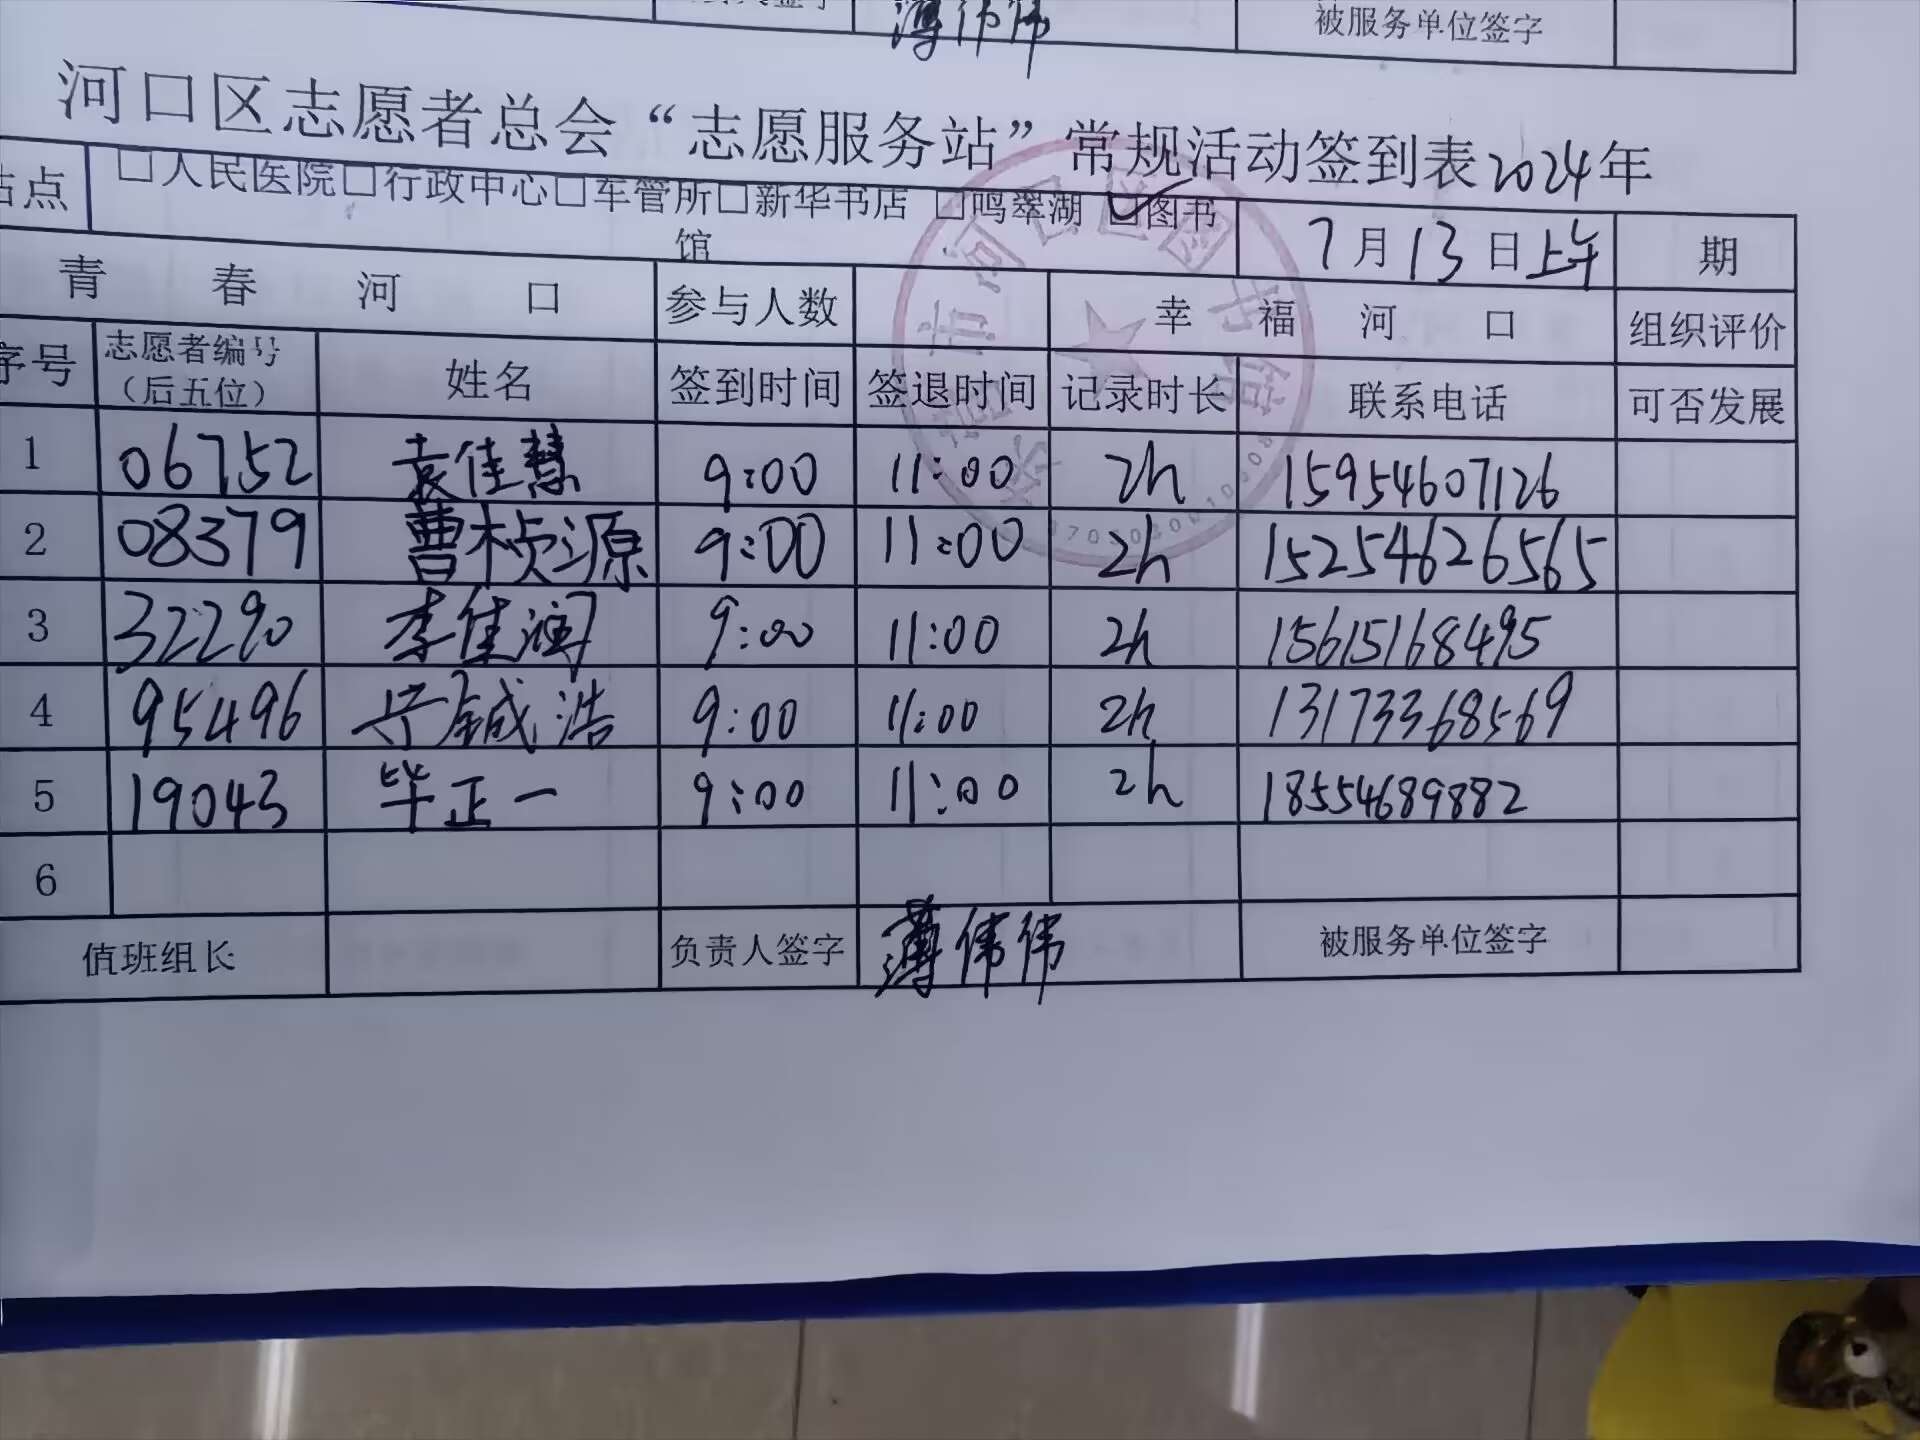 薄伟伟 被服务单位签字
河口区志愿者总会“志愿服务站”常规活动签到表2024年
站点 □人民医院□行政中心□车管所□新华书店 □鸣翠湖 ☑图书馆 7月13日上午 期
青春河口 参与人数 幸福河口 组织评价
序号 志愿者编号（后五位） 姓名 签到时间 签退时间 记录时长 联系电话 可否发展
1 06752 袁佳慧 9:00 11:00 2h 15954607126
2 08379 曹桢源 9:00 11:00 2h 15254626565
3 32290 李佳润 9:00 11:00 2h 15615168495
4 95496 鋮浩 9:00 11:00 2h 13173368569
5 19043 毕正一 9:00 11:00 2h 18554689882
6
值班组长 负责人签字 薄伟伟 被服务单位签字